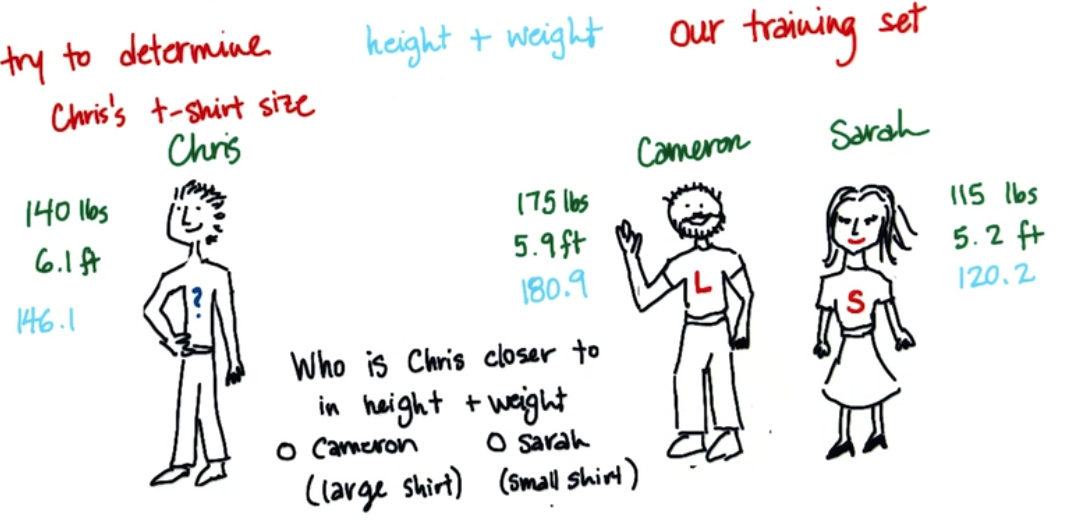 try to determine
Chris's t-shirt size
height + weight
our training set
Chris
140 lbs
6.1 ft
146.1
?
Cameron
175 lbs
5.9 ft
180.9
L
Sarah
115 lbs
5.2 ft
120.2
S
Who is Chris closer to
in height + weight
O Cameron O Sarah
(large shirt) (small shirt)